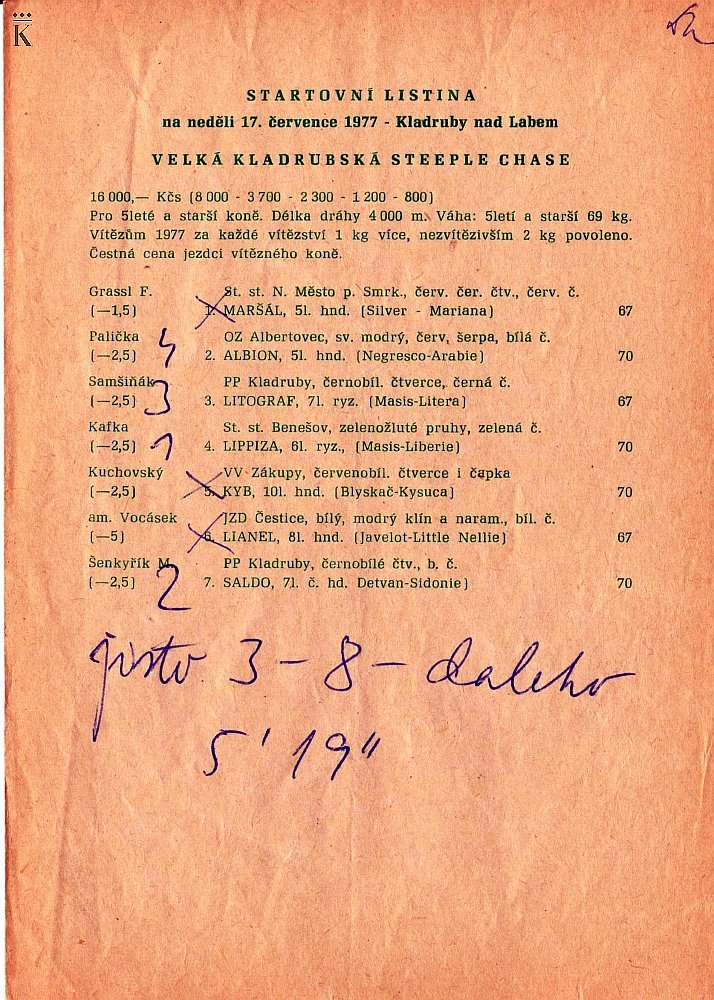 K
STARTOVNÍ LISTINA
na neděli 17. července 1977 - Kladruby nad Labem
VELKÁ KLADRUBSKÁ STEEPLE CHASE
16 000,— Kčs (8 000 - 3 700 - 2 300 - 1 200 - 800)
Pro 5leté a starší koně. Délka dráhy 4 000 m. Váha: 5letí a starší 69 kg.
Vítězům 1977 za každé vítězství 1 kg více, nezvítězivším 2 kg povoleno.
Čestná cena jezdci vítězného koně.
Grassl F. St. st. N. Město p. Smrk., červ. čer. čtv., červ. č.
(—1,5) 1. MARŠÁL, 5l. hnd. (Silver - Mariana) 67
Palička OZ Albertovec, sv. modrý, červ. šerpa, bílá č.
(—2,5) 4 2. ALBION, 5l. hnd. (Negresco-Arabie) 70
Samšiňák PP Kladruby, černobíl. čtverce, černá č.
(—2,5) 3 3. LITOGRAF, 7l. ryz. (Masis-Litera) 67
Kafka St. st. Benešov, zelenožluté pruhy, zelená č.
(—2,5) 1 4. LIPPIZA, 6l. ryz., (Masis-Liberie) 70
Kuchovský VV Zákupy, červenobíl. čtverce i čapka
(—2,5) 5. KYB, 10l. hnd. (Blyskač-Kysuca) 70
am. Vocásek JZD Čestice, bílý, modrý klín a naram., bíl. č.
(—5) 6. LIANEL, 8l. hnd. (Javelot-Little Nellie) 67
Šenkyřík M. PP Kladruby, černobílé čtv., b. č.
(—2,5) 2 7. SALDO, 7l. č. hd. Detvan-Sidonie) 70
jisto 3 - 8 - daleko
5' 19"